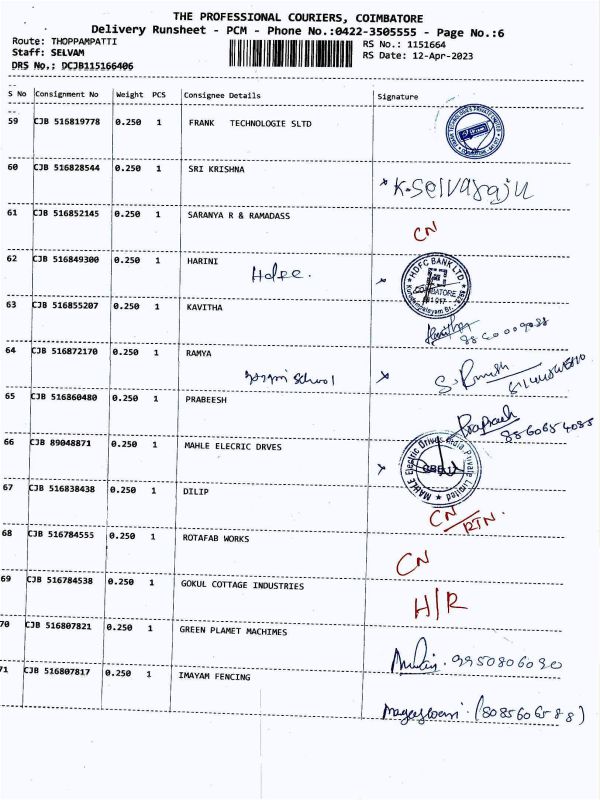 THE PROFESSIONAL COURIERS, COIMBATORE
Delivery Runsheet - PCM - Phone No.:0422-3505555 - Page No.:6
Route: THOPPAMPATTI RS No.: 1151664
Staff: SELVAM RS Date: 12-Apr-2023
DRS No.: DCJB115166406
S No Consignment No Weight PCS Consignee Details Signature
59 CJB 516819778 0.250 1 FRANK TECHNOLOGIE SLTD
60 CJB 516828544 0.250 1 SRI KRISHNA K.Selvaraju
61 CJB 516852145 0.250 1 SARANYA R & RAMADASS CN
62 CJB 516849300 0.250 1 HARINI HDFC BANK LTD
Hdfc. COIMBATORE
63 CJB 516855207 0.250 1 KAVITHA
64 CJB 516872170 0.250 1 RAMYA
school
65 CJB 516860480 0.250 1 PRABEESH
66 CJB 89048871 0.250 1 MAHLE ELECRIC DRVES MAHLE Electric Drives India Private Limited
67 CJB 516838438 0.250 1 DILIP CN/RTN.
68 CJB 516784555 0.250 1 ROTAFAB WORKS CN
69 CJB 516784538 0.250 1 GOKUL COTTAGE INDUSTRIES H/R
70 CJB 516807821 0.250 1 GREEN PLAMET MACHIMES 9950806090
71 CJB 516807817 0.250 1 IMAYAM FENCING (8085606588)